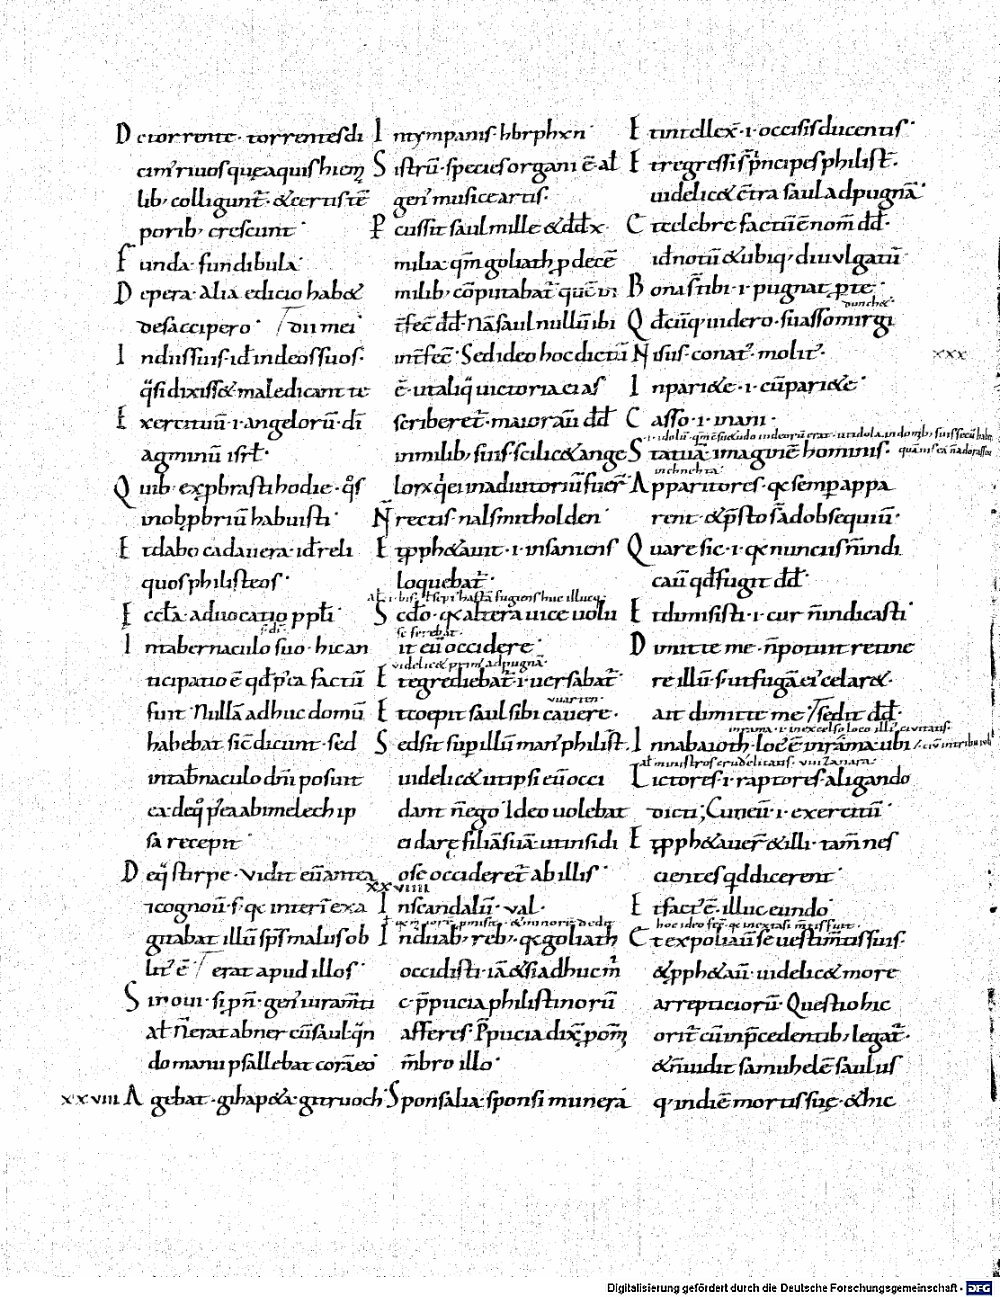 De torrente · torrentes di
cunt riuos quę aquis hiem
lib; colligunt̄ · & certis tē
porib; crescunt ·
Funda · fundibula ·
De pera · alia edicio hab&
de saccipero · / dii mei ·
In diis suis · id in deos suos ·
q̄si dixiss& maledicant te
Exercituū · i · angelorū · dī
agminū isrł ·
Quib· exp̱brasti hodie · q̊s
in oḇp̱briū habuisti ·
Et dabo cadauera · id reli
quos philisteos ·
Eccła · aduocatio pp̄łi ·
In tabernaculo suo · hic an
ticipatio ē qđ p̊ea factū
sunt · Nullā adhuc domū
habebat sic̄ dicunt · sed
in tab̄naculo dn̄i posuit
ea deq̊ p̊ea abimelech ip
sa recepit ·
De q̊ stirpe · Vidit eū antea
gitabat illū sp̄s malus ob
lit' ē · / erat apud illos ·
Si noui · si pn̄ · gen' iuram̄ti
ał N̄ erat abner cū saul qn̄
do manu psallebat corā eo ·
xxviii Agebat · gihap&a · gitruoch ·
In tympanis · hbrphxn ·
Sistrū · species organi ē · ał
gen' musice artis ·
Pcussit saul mille & dd̄ x ·
milia · qm̄ goliath p̱ decē
milib; cōputabat̄ quē
int̄fec̄ dd̄ · Nā saul nullū ibi
int̄fec̄ · Sed ideo hoc dictū
ē · ut aliq̄ uictoria ei as
scriberet̄ · maior aū dd̄
in milib; suis · scilic& ange
lorx q̊ ei in adiutoriū fuer̄
N̄ rectis · nals mithol den ·
Et p̱ph&auit · i · insaniens
loquebat̄ ·
Scdo · qͣ altera uice uolu
se ferebat ·
it eū occidere ·
uidelic& prim' ad pugnā ·
Et egrediebat̄ · i · uersabat̄ ·
Et coepit saul sibi cauere ·
Sed sit sup illū man' philist̄ ·
uidelic& ut ipsi eū occi
dant n̄ ego · Ideo uolebat
ei darę filiā suā · ut insidi
ose occideret̄ ab illis ·
xxviiii
In scandalū · val ·
In duab; reb; · qͣ goliath
occidisti · iā & si adhuc m̊
c · p̄pucia philistinorū
afferes · P̄pucia dix̱ pom̄
m̄bro illo ·
Sponsalia · sponsi munera
Et intellex̄ · i · occisis ducentis ·
Et regressi s̄ p̊ncipes philist̄ ·
uidelic& c̄tra saul ad pugnā ·
Et celebre factū ē nom̄ dd̄ ·
id notū & ubiq; diuulgatū ·
Bona s̄ tibi · i · pugnat p̱ te ·
Qd̄cūq; uidero ·
Nisus · conat̄ · molit̄ ·
xxx
In pari&e · i · cū pari&e ·
Casso · i · inani ·
Statuā · imaginē hominis ·
Apparitores · qͣ semp appa
rent · & p̄sto s̄ ad obsequiū ·
Quare sic · i · qͣ nunciis n̄ indi
caū qđ fugit dd̄ ·
Et dimisisti · i · cur n̄ indicasti ·
Dimitte me · n̄ potuit retine
re illū · s · ut fugā ei' celar& ·
ait dimitte me · / sedit dd̄ ·
In nabaioth · loc' ē in rama · ubi
Lictores · i · raptores · aligando
dicti; Cuneū · i · exercitū ·
Et p̱ph&auer̄ & illi · tam̄ nes
cientes qđ dicerent ·
Et fact' ē · illuc eundo ·
Et expoliauī se uestim̄tis suis ·
& p̱ph&aū · uidelic& more
arrepticiorū · Questio hic
orit̄ cū in p̄cedentib; legat̄ ·
& n̄ uidit samuhelē saulus
q; in diē mortis suę · & hic
Digitalisierung gefördert durch die Deutsche Forschungsgemeinschaft - DFG